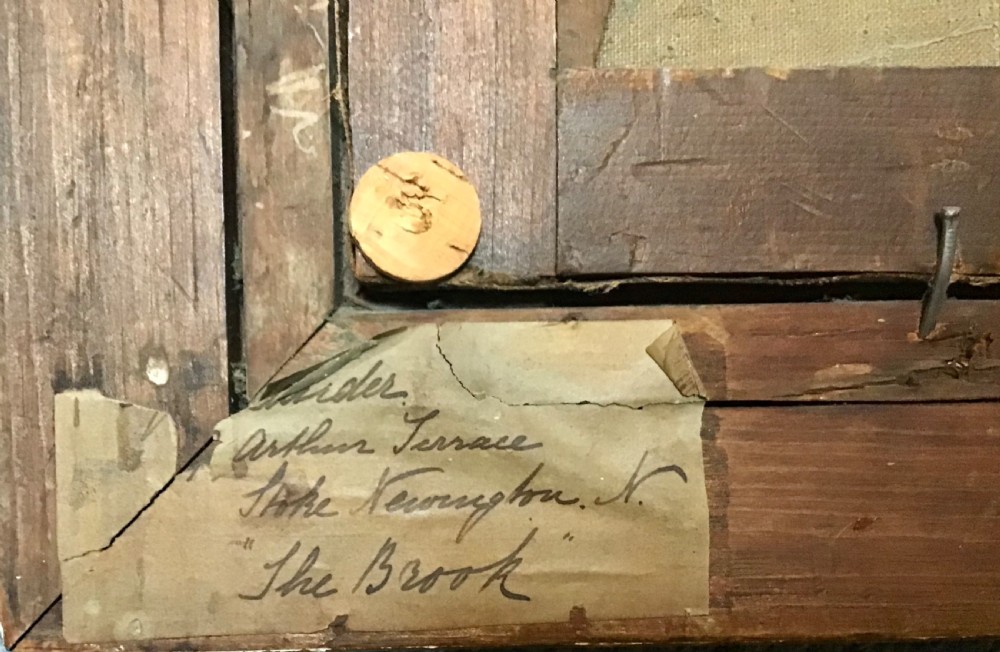 Arthur Terrace
Stoke Newington. N.
"The Brook"